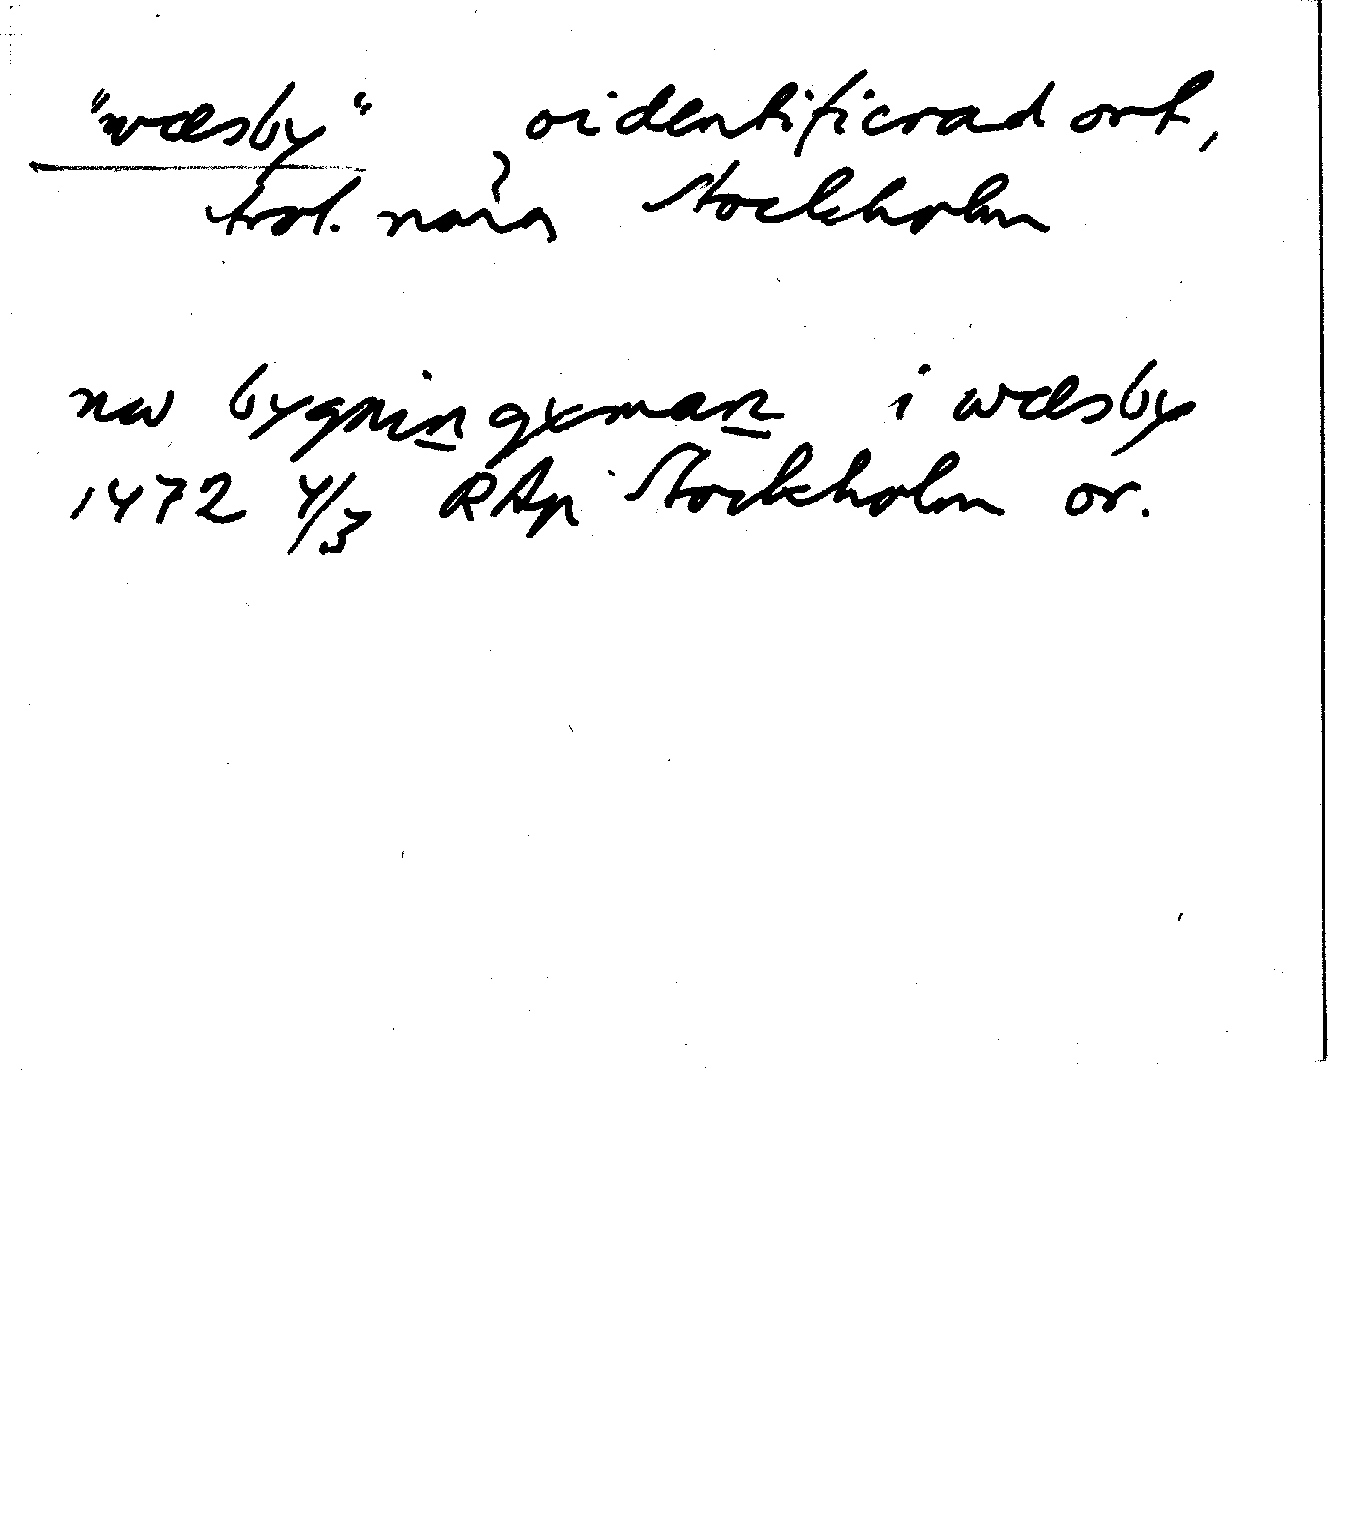 "wæsby" oidentificrad ort,
trol. nära Stockholm
nw bygningxman i wæsby
1472 4/3 RAp Stockholm or.